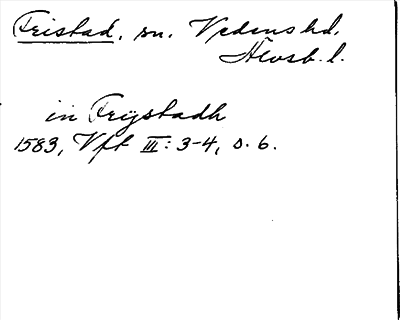 Fristad, sn. Vedens hd,
Älvsb. l.
in Frijstadh
1583, Vft III: 3-4, s. 6.